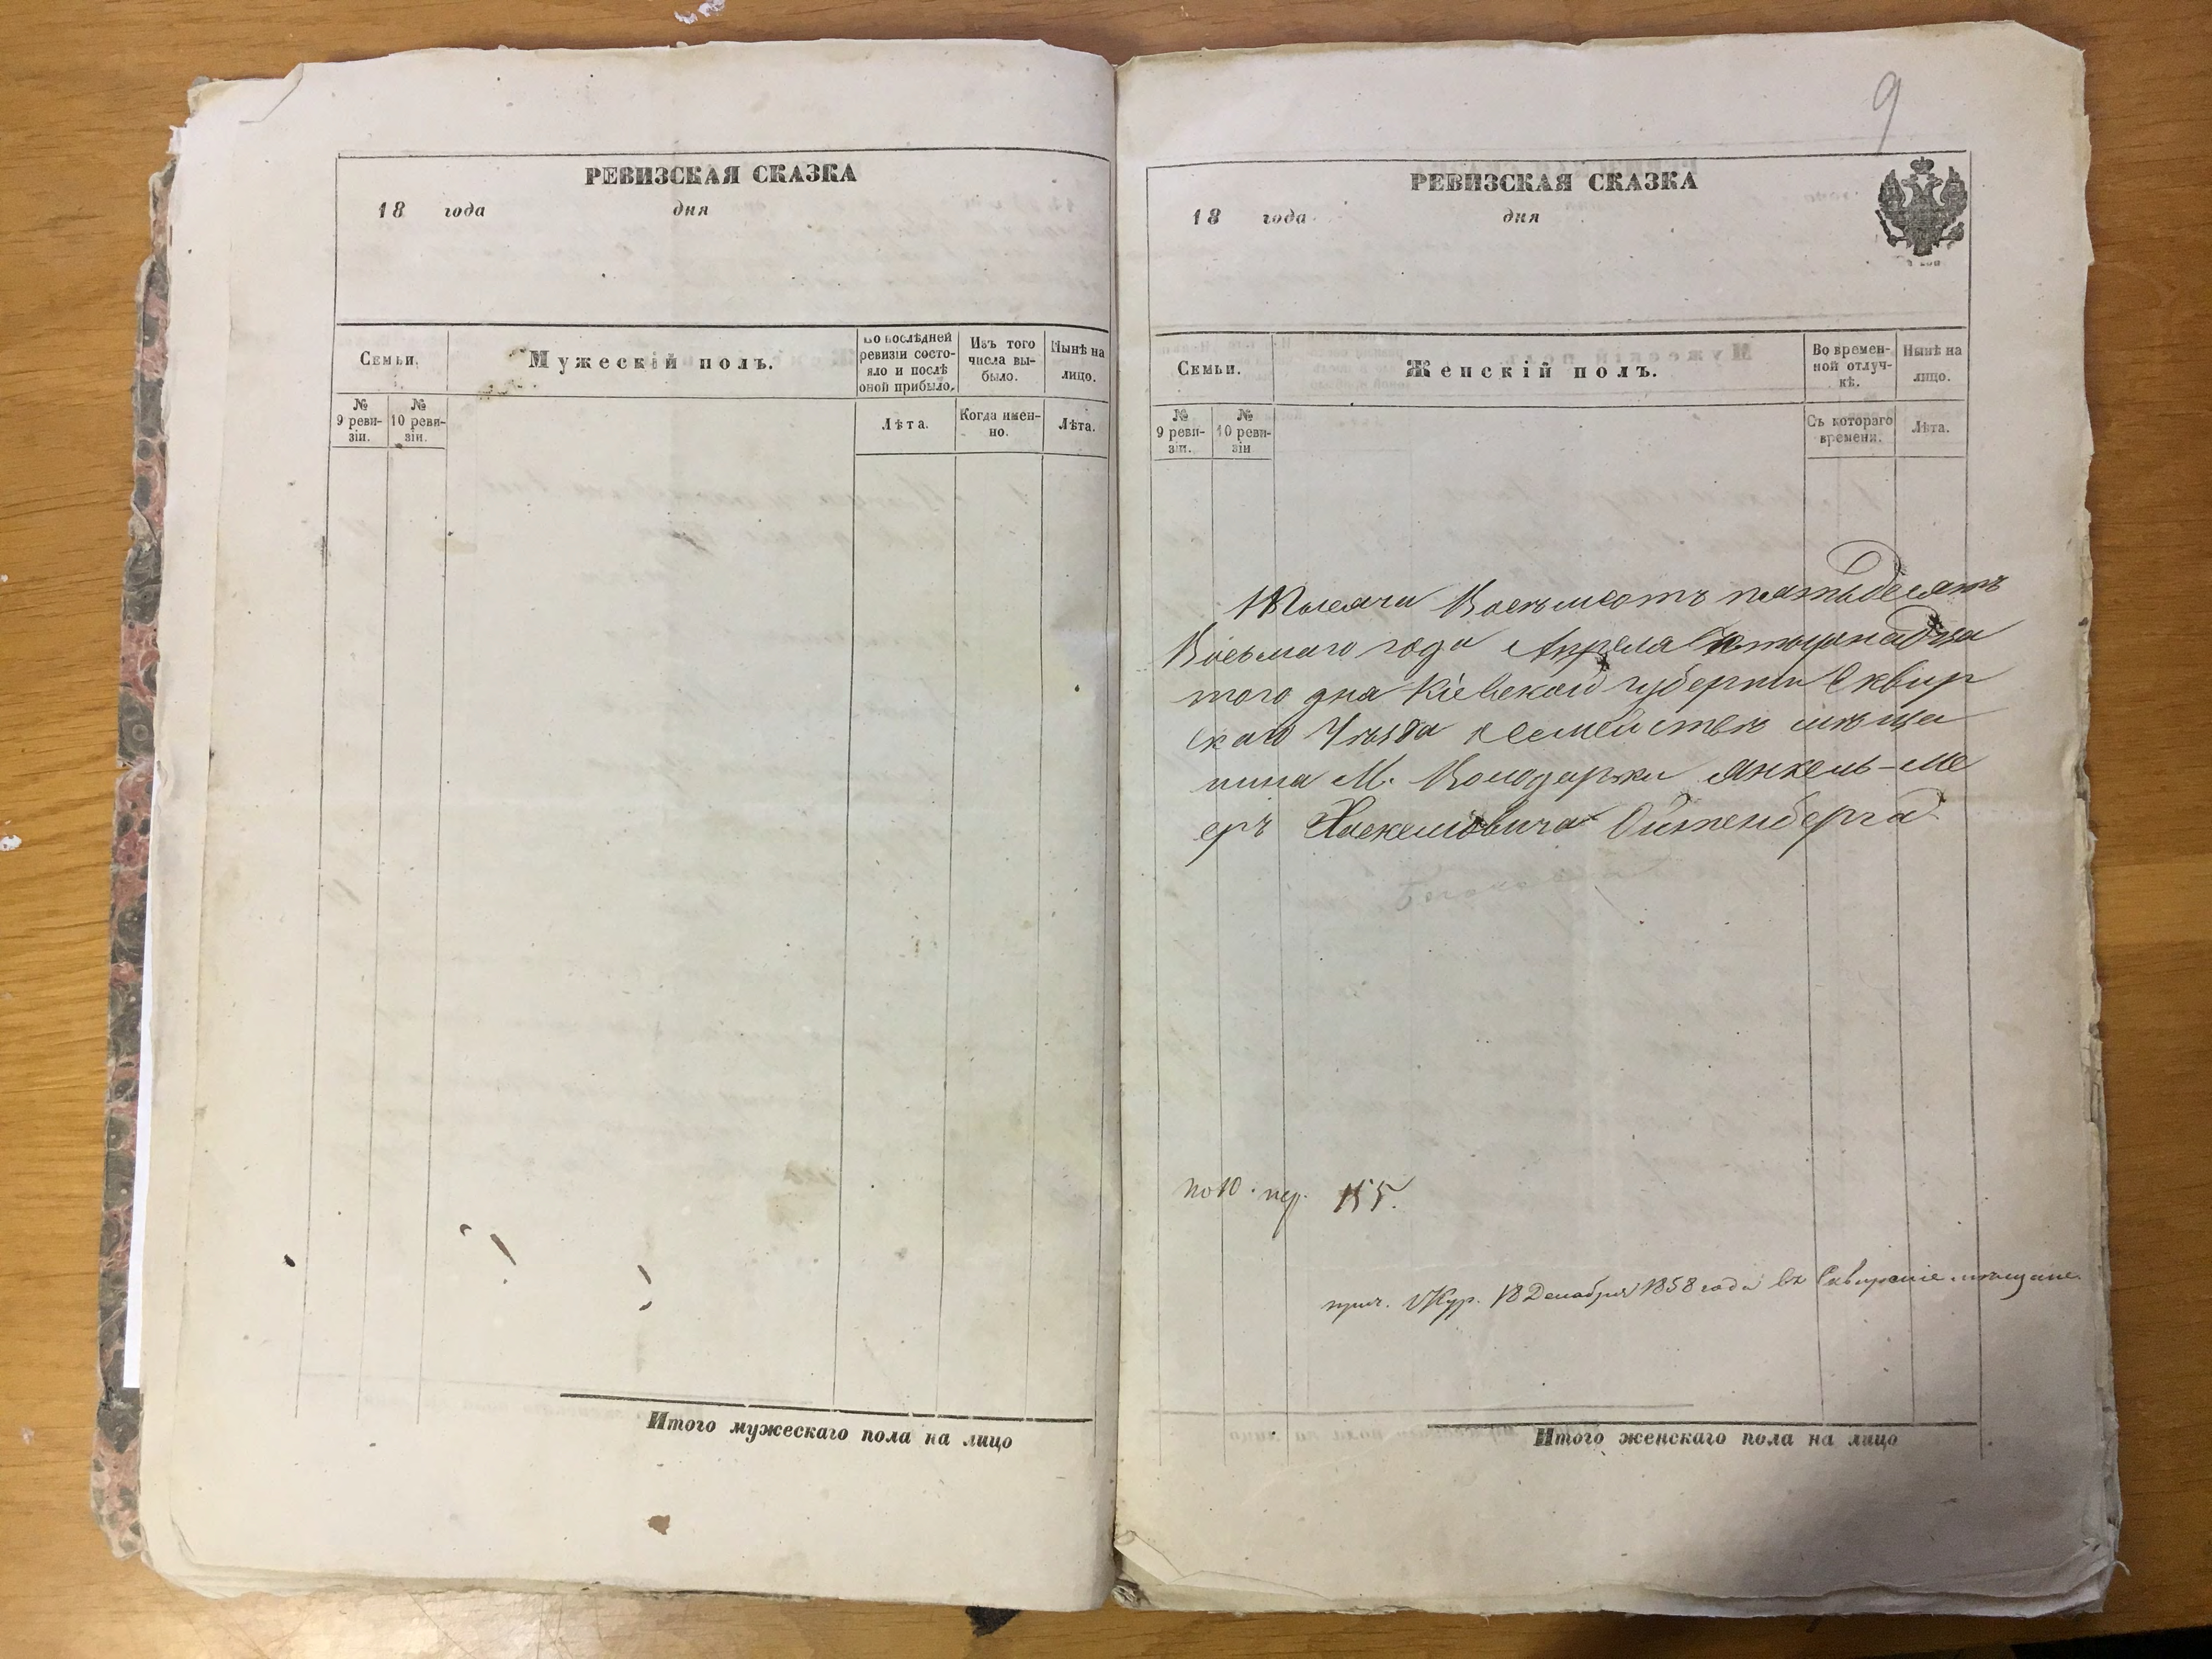 РЕВИЗСКАЯ СКАЗКА
18 года дня
Семьи.
Мужескій полъ.
По послѣдней ревизіи состояло и послѣ оной прибыло.
Изъ того числа выбыло.
Нынѣ на лицо.
№ 9 ревизіи.
№ 10 ревизіи.
Лѣта.
Когда именно.
Лѣта.
Итого мужескаго пола на лицо
9
РЕВИЗСКАЯ СКАЗКА
18 года дня
Семьи.
Женскій полъ.
Во временной отлучкѣ.
Нынѣ на лицо.
№ 9 ревизіи.
№ 10 ревизіи
Съ котораго времени.
Лѣта.
Тысяча Восемьсотъ пятьдесятъ
Восьмаго года Апреля Четырнадца
того дня Кіевской губерніи Сквир
скаго Уезда о семействѣ мѣща
нина М. Володарки Янкель-Ме
еръ Хаскелевича Ойженберга
по 10. пер. 155.
прич. Жур. 18 Декабря 1858 года въ Сквирскіе мѣщане.
Итого женскаго пола на лицо